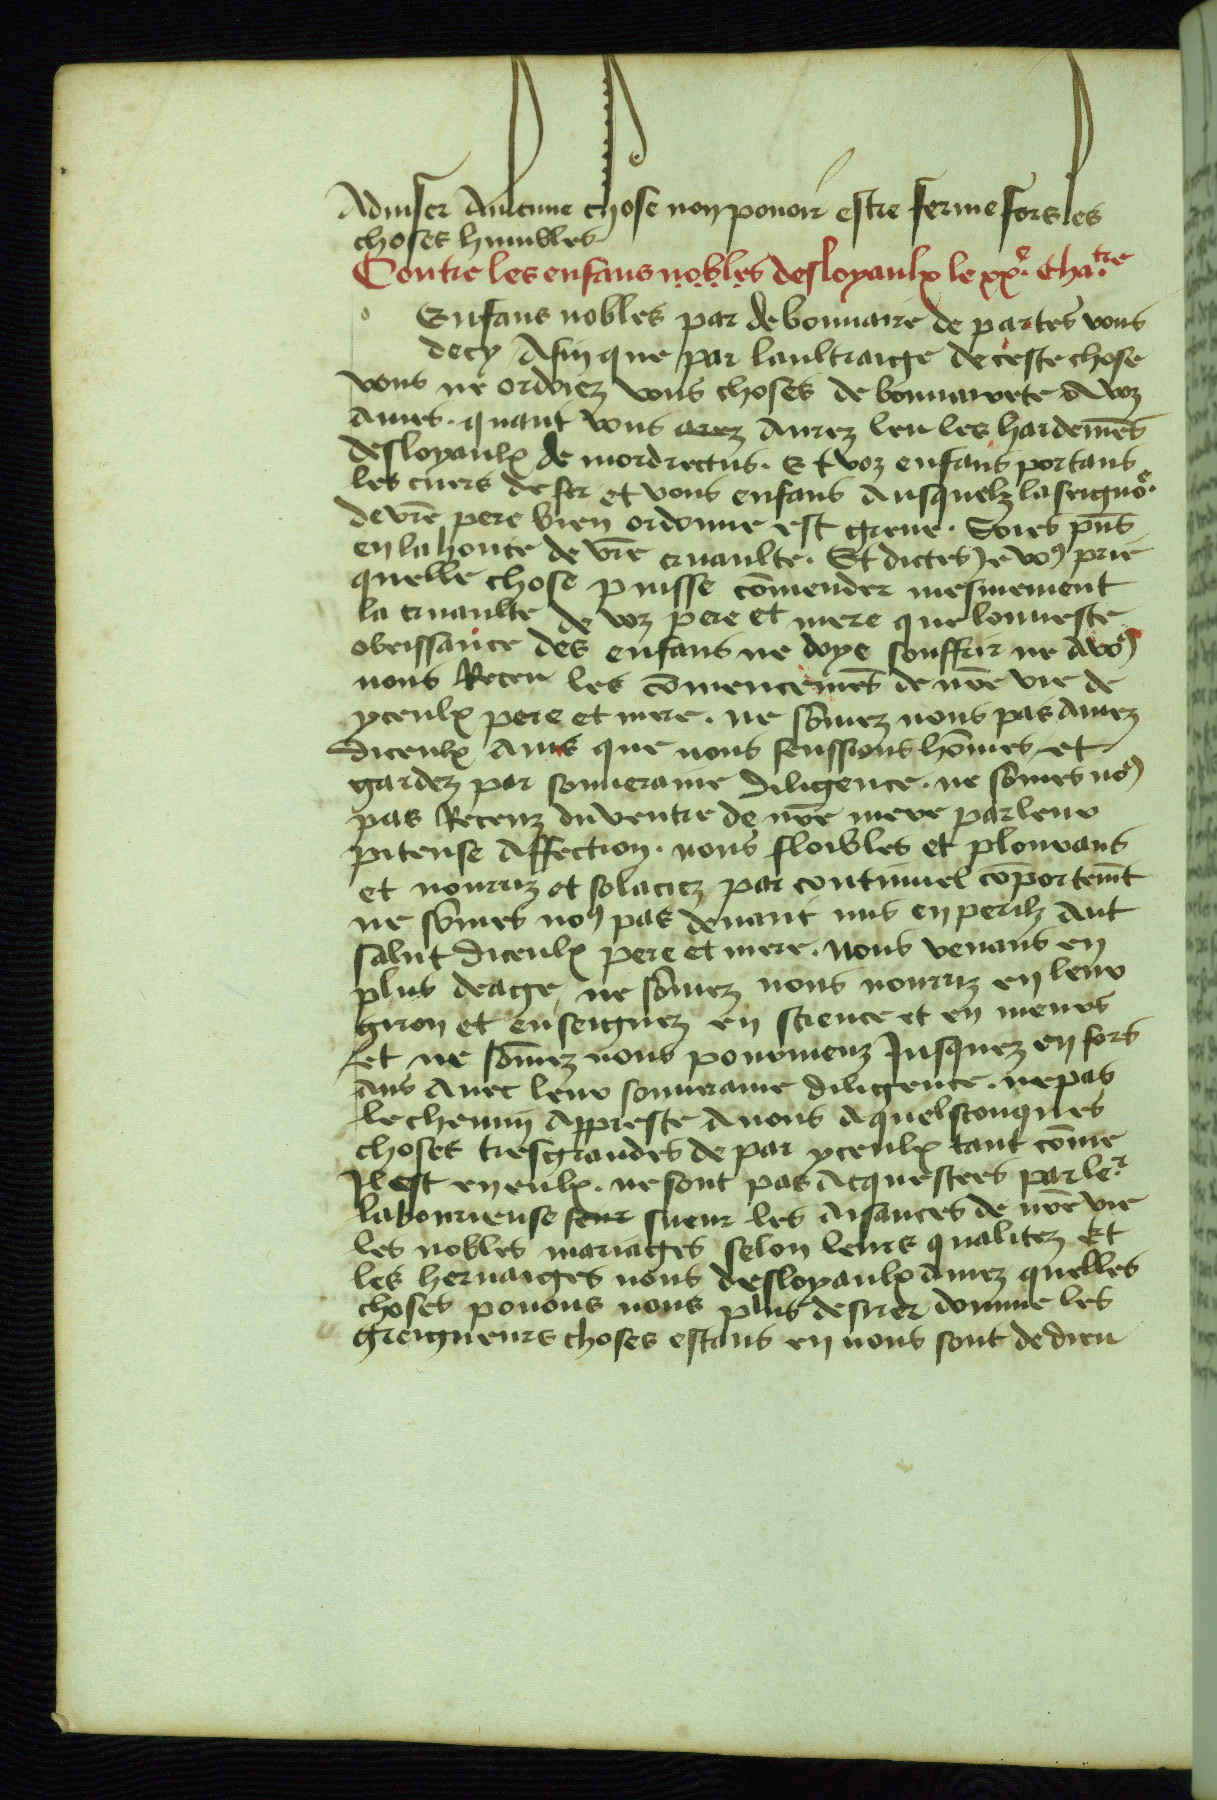 Adviser Aucune chose non povoir estre ferme fors les
choses humbles
Contre les enfans nobles desloyaulx le xxe. Cha.tre
Enfans nobles par debonnaire departes vous
decy Afin que par laultraige de ceste chose
vous ne ordoiez vous choses de bonnairete a voz
Ames. quant vous arez Aurez leu les hardemēs
desloyaulx de mordrectus. Et voz enfans portans
les cuers de fer et vous enfans Ausquelz la seignoe.
de vrē pere bien ordonne est greve. Soies pñs
en la honte de vrē cruaulte. Et dictes Je voꝯ prie
quelle chose puisse cōmender mesmement
la cruaulte de voz pere et mere que lonneste
obeissance des enfans ne doye souffrir ne Avoꝯ
nous Receu les cōmencemēs de nrē vie de
yceulx pere et mere. ne sōmez nous pas Amez
diceulx Ains que nous feussions hōmes et
gardez par souveraine diligence. ne sōmes noꝯ
pas Receuz du ventre de nrē mere par leur
piteuse Affection. nous floibles et plourans
et nourriz et solaciez par continuel cōportemt
ne sōmes noꝯ pas devant mis en perilz Aut
salut diceulx pere et mere. Nous venans en
plus deage, ne sōmez nous nourriz en leur
giron et enseignez en science et en meurs
et ne sōmez nous pourmenz Jusquez en fors
Ans Avec leur souveraine diligence. ne pas
le chemin Appreste A nous A quelsconques
choses tresgrandes de par yceulx tant cōme
Il est en eulx. ne sont pas Acquestees par ler.
labourieuse seur sueur les Aisances de nrē vie
les nobles mariages selon leurs qualitez Et
les hernaiges nous desloyaulx Amez quelles
choses povons nous plus desirer donme les
greigneurs choses estans en nous sont de dieu